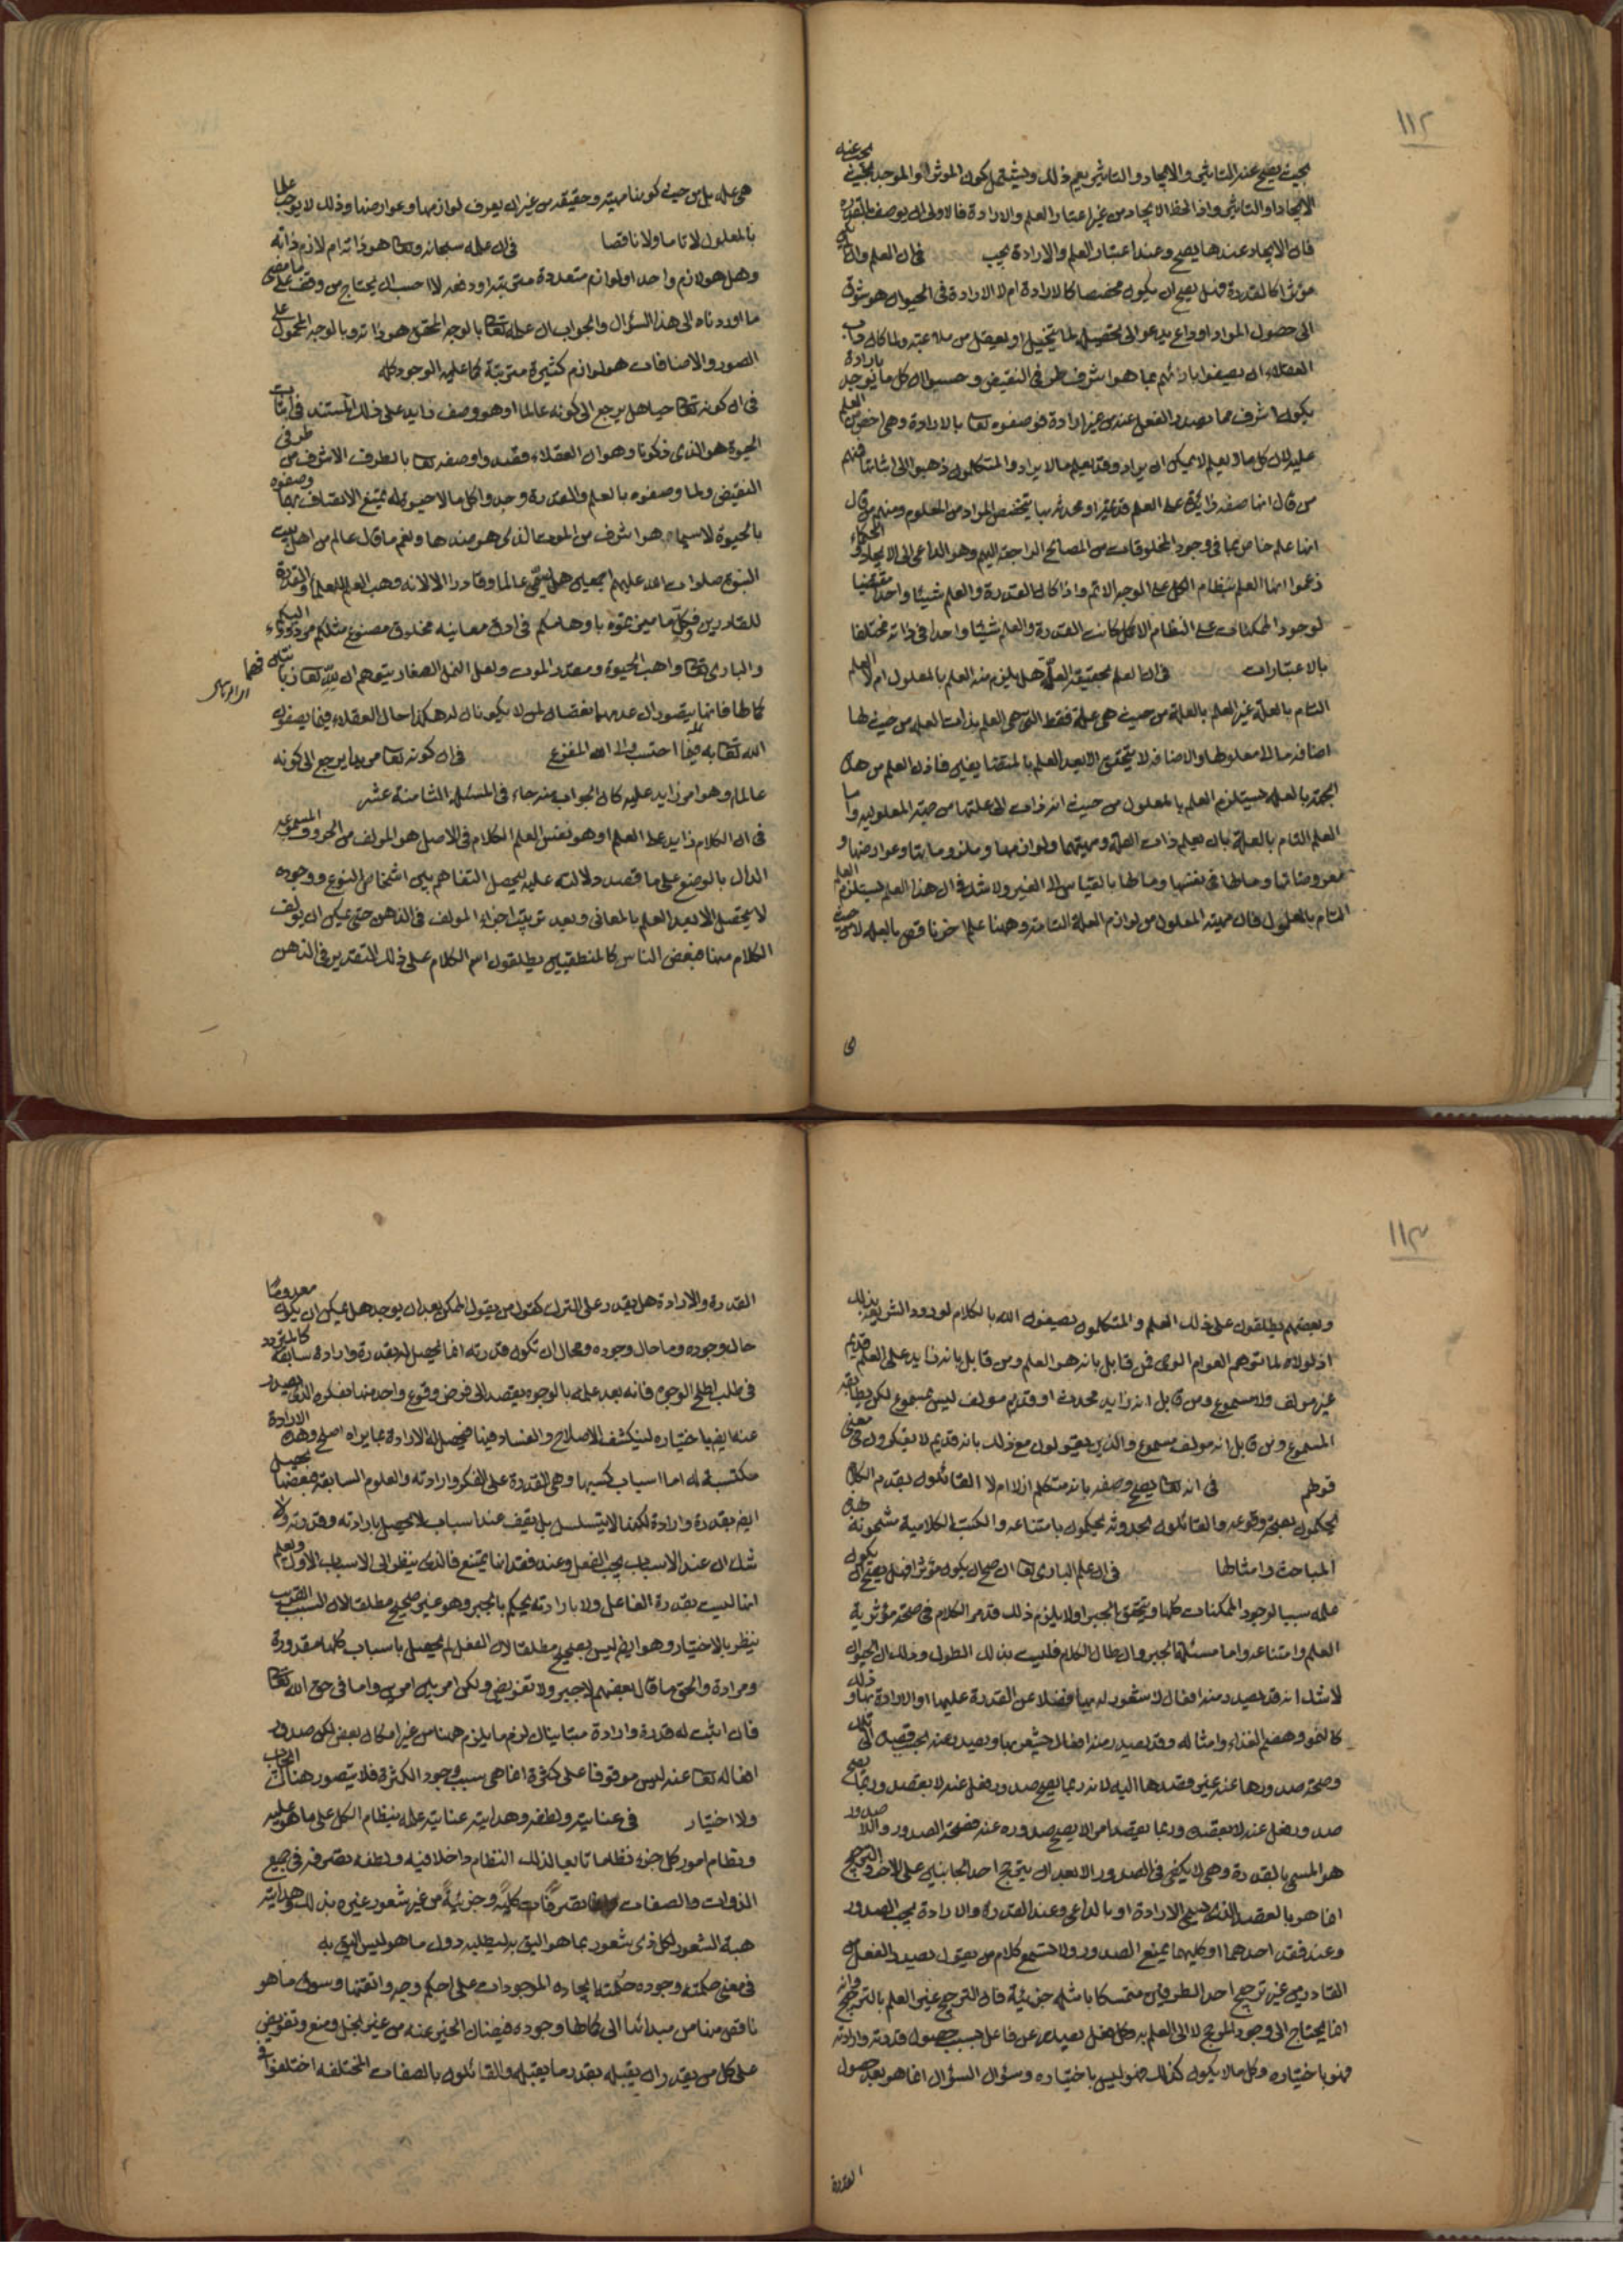 ١١٢
بحيث يصح عنه التاثير والايجاد والتاثير يعم ذلك ويشتمل كون الموثر او الموجد بحيث يجب عنه
الايجاد او التاثير واذا لحظ الايجاد من غير اعتبار العلم والارادة فالاولى ان يوصف بالقدرة
فان الايجاد عندها يصح وعند اعتبار العلم والارادة يجب في ان العلم وان كان
مؤثرا كالقدرة فهل يصح ان يكون مخصصا كالارادة ام لا الارادة في الحيوان هو شوق
الى حصول المراد او داع يدعو الى تحصيله لما يتخيل او يعقل من ملاءمته ولما كان داب
العقلاء ان يصفوا بارئهم بما هو اشرف طرفي النقيض وحسبوا ان كل ما يوجد بارادة
يكون اشرف مما يصدر الفعل عنه من غير ارادة فوصفوه تعالى بالارادة وهي اخص من العلم
عليه لان كل ما يعلم لا يمكن ان يراد وقد يعلم ما لا يراد والمتكلمون ذهبوا الى اثباتها فمنهم
من قال انها صفة زائدة على العلم قديمة او محدثة بها يتخصص المراد من المعلوم ومنهم من قال
انها علم خاص بما في وجود المخلوقات من المصالح الراجعة اليهم وهو الداعي الى الايجاد والحكماء
زعموا انها العلم بنظام الكل على الوجه الاتم واذا كان القدرة والعلم شيئا واحدا مقتضيا
لوجود الممكنات على النظام الاكمل كانت القدرة والعلم شيئا واحدا في ذاته مختلفا
بالاعتبارات في ان العلم بحقيقة العلة هل يلزم منه العلم بالمعلول ام لا العلم
التام بالعلة غير العلم بالعلة من حيث هي علة فقط التي هي العلم بذات العلة من حيث لها
اضافة ما الى معلولها والاضافة لا يتحقق الا بعد العلم بالمتضايفين فاذن العلم من هذه
الجهة بالعلة يستلزم العلم بالمعلول من حيث انه ذات الى علتها من جهة المعلولية واما
العلم التام بالعلة بان يعلم ذات العلة ومهيتها ولوازمها وملزوماتها وعوارضها و
معروضاتها وما لها في نفسها وما لها بالقياس الى الغير ولا شك في ان هذا العلم يستلزم العلم
التام بالمعلول فان مهية المعلول من لوازم العلة التامة وههنا علم اخر ناقص بالعلة لا من حيث
هي علة بل من حيث كونها مهية وحقيقة من غير ان يعرف لوازمها وعوارضها وذلك لا يوجب علما
بالمعلول لا تاما ولا ناقصا في ان علمه سبحانه وتعالى هو ذاته ام لازم ذاته
وهل هو لازم واحد او لوازم متعددة مترتبة او دفعة لا احسب ان يحتاج من وقف على ما مضى
ما اوردناه الى هذا السؤال والجواب ان علمه تعالى بالوجه المحقق هو ذاته وبالوجه المحمول على
الصور والاضافات هو لوازم كثيرة مترتبة كما عليه الوجود كله
في ان كونه تعالى حيا هل يرجع الى كونه عالما او هو وصف زايد على ذلك المستند في اثبات
الحيوة هو الذي ذكرنا وهو ان العقلاء قصدوا وصفه تعالى بالطرف الاشرف من طرفي
النقيض ولما وصفوه بالعلم والقدرة وجدوا كل ما لا حيوة له يمتنع الاتصاف بهما وصفوه
بالحيوة لاسيما وهو اشرف من الموت الذي هو ضدها ونعم ما قال عالم من اهل بيت
النبوة صلوات الله عليهم اجمعين هل يسمى عالما وقادرا الا لانه وهب العلم للعلماء والقدرة
للقادرين فكل ما ميزتموه باوهامكم في ادق معانيه مخلوق مصنوع مثلكم مردود اليكم
والباري تعالى واهب الحيوة ومقدر الموت ولعل النمل الصغار يتوهم ان لله تعالى زبانيتين
كما لها فانها يتصور ان عدمهما نقصان لمن لا يكونان له هكذا حال العقلاء فيما يصفون
الله تعالى به فيما احتسب والى الله المفزع في ان كونه تعالى مريدا يرجع الى كونه
عالما او هو امر زايد عليه كان الجواب عنه جاء في المسئلة الثامنة عشر
في ان الكلام زايد على العلم او هو نفس العلم الكلام في الاصل هو المولف من الحروف المسموعة
الدال بالوضع على ما قصد دلالته عليه ليحصل التفاهم بين اشخاص النوع ووجوده
لا يتحصل الا بعد العلم بالمعاني وبعد ترتيب اجزاء المولف في الذهن حتى يمكن ان يولف
الكلام منها فبعض الناس كالمنطقيين يطلقون اسم الكلام على ذلك التقدير في الذهن
١١٣
وبعضهم يطلقون على ذلك العلم والمتكلمون يصفون الله بالكلام لورود الشريعة بذلك
اذ لولاه لما توهم العوام الوحي فمن قايل بانه هو العلم ومن قايل بانه زايد على العلم قديم
غير مولف ولا مسموع ومن قايل انه زايد محدث او قديم مولف ليس بمسموع لكن يطابقه
المسموع ومن قايل انه مولف مسموع والذين يقولون مع ذلك بانه قديم لا يفكرون في معنى
قولهم في انه تعالى يصح وصفه بانه متكلم ازلا ام لا القائلون بقدم الكلام
يحكمون بصحة وقوعه والقائلون بحدوثه يحكمون بامتناعه والكتب الكلامية مشحونة بهذه
المباحث وامثالها في ان علم الباري تعالى ان صح ان يكون مؤثرا فهل يصح ان يكون
علمه سببا لوجود الممكنات كلها ويتحقق الجبر او لا يلزم ذلك قد مر الكلام في صحة مؤثرية
العلم وامتناعه واما مسئلة الجبر وان طال الكلام فليست بذلك الطول وذلك ان الحيوان
لا شك انه قد يصدر منه افعال لا شعور له بها فضلا عن القدرة عليها او الارادة بها وذلك
كالنمو وهضم الغذاء وامثاله وقد يصدر منه افعال يشعر بها ويصدر عنه بحسب قصده الى تلك
وصحة صدورها عنه غير قصدها اليه لانه ربما يصح صدور فعل عنه لا يقصد وربما يصح
صدور فعل عنه لا يقصد وربما يقصد امرا لا يصح صدوره عنه فصحة الصدور واللا صدور
هو المسمى بالقدرة وهي لا يكفي في الصدور الا بعد ان يترجح احد الجانبين على الاخر والترجيح
انما هو بالقصد الذي يسمى الارادة او بالداعي وعند القدرة والارادة يجب الصدور
وعند فقد احدهما او كليهما يمتنع الصدور ولا يستمع كلام من يقول بصدور الفعل عن
القادر من غير ترجيح احد الطرفين متمسكا بامثلة جزئية فان الترجيح غير العلم بالترجيح وانه
انما يحتاج الى وجود المرجح لا الى العلم به وكل فعل يصدر عن فاعل بسبب حصول قدرته وارادته
فهو باختياره وكل ما لا يكون كذلك فهو ليس باختياره وسؤال السؤال انما هو بعد حصول
القدرة
القدرة والارادة هل يقدر على الترك كقول من يقول الممكن بعد ان يوجد هل يمكن ان يكون معدوما
حال وجوده وما حال وجوده ومحال ان تكون قدرته انما يحصل له بقدرة وارادة سابقة كالمتردد
في طلب اصلح الوجوه فانه بعد علمه بالوجوه يقصد الى فرض وقوع واحد منها بفكره الذي يصدر
عنه ايضا باختياره لينكشف الاصلاح والفساد فيها فيحصل له الارادة بما يراه اصلح وهذه الارادة
مكتسبة له اما اسباب كسبها وهي القدرة على الفكر وارادته والعلوم السابقة فبعضها يحصل
ايضا بقدرة وارادة لكنها لا يتسلسل بل يقف عند اسباب لا يحصل بارادته وقدرته ولا
شك ان عند الاسباب يجب الفعل وعند فقدانها يمتنع فالذي ينظر الى الاسباب الاول ويعلم
انها ليست بقدرة الفاعل ولا بارادته يحكم بالجبر وهو غير صحيح مطلقا لان السبب القريب
ينظر بالاختيار وهو ايضا ليس بصحيح مطلقا لان الفعل لم يحصل باسباب كلها مقدورة
ومرادة والحق ما قال بعضهم لا جبر ولا تفويض ولكن امر بين امرين واما في حق الله تعالى
فان اثبت له قدرة وارادة متباينان لزم ما يلزم ههنا من غير امكان بعض لكن صدور
افعاله تعالى عنه ليس موقوفا على كثرة انما هي بسبب وجود الكثرة فلا يتصور هناك ايجاب
ولا اختيار في عنايته ولطفه وهدايته عنايته علمه بنظام الكل على ما هو عليه
ونظام امور كل جزء نظاما تابعا لذلك النظام داخلا فيه ولطفه تصرفه في جميع
الذوات والصفات تصرفات كلية وجزئية من غير شعور غيره بذلك وهدايته
هبة الشعور لكل ذي شعور بما هو اليق به ليطلبه دون ما هو ليس اليق به
في معنى حكمته وجوده حكمته ايجاده الموجودات على احكم وجه واتقنها وسوق ما هو
ناقص منها من مبدائها الى كمالها وجوده فيضان الخير عنه من غير بخل ومنع وتعويض
على كل من يقدر ان يقبله بقدر ما يقبله والقائلون بالصفات المختلفة اختلفوا في